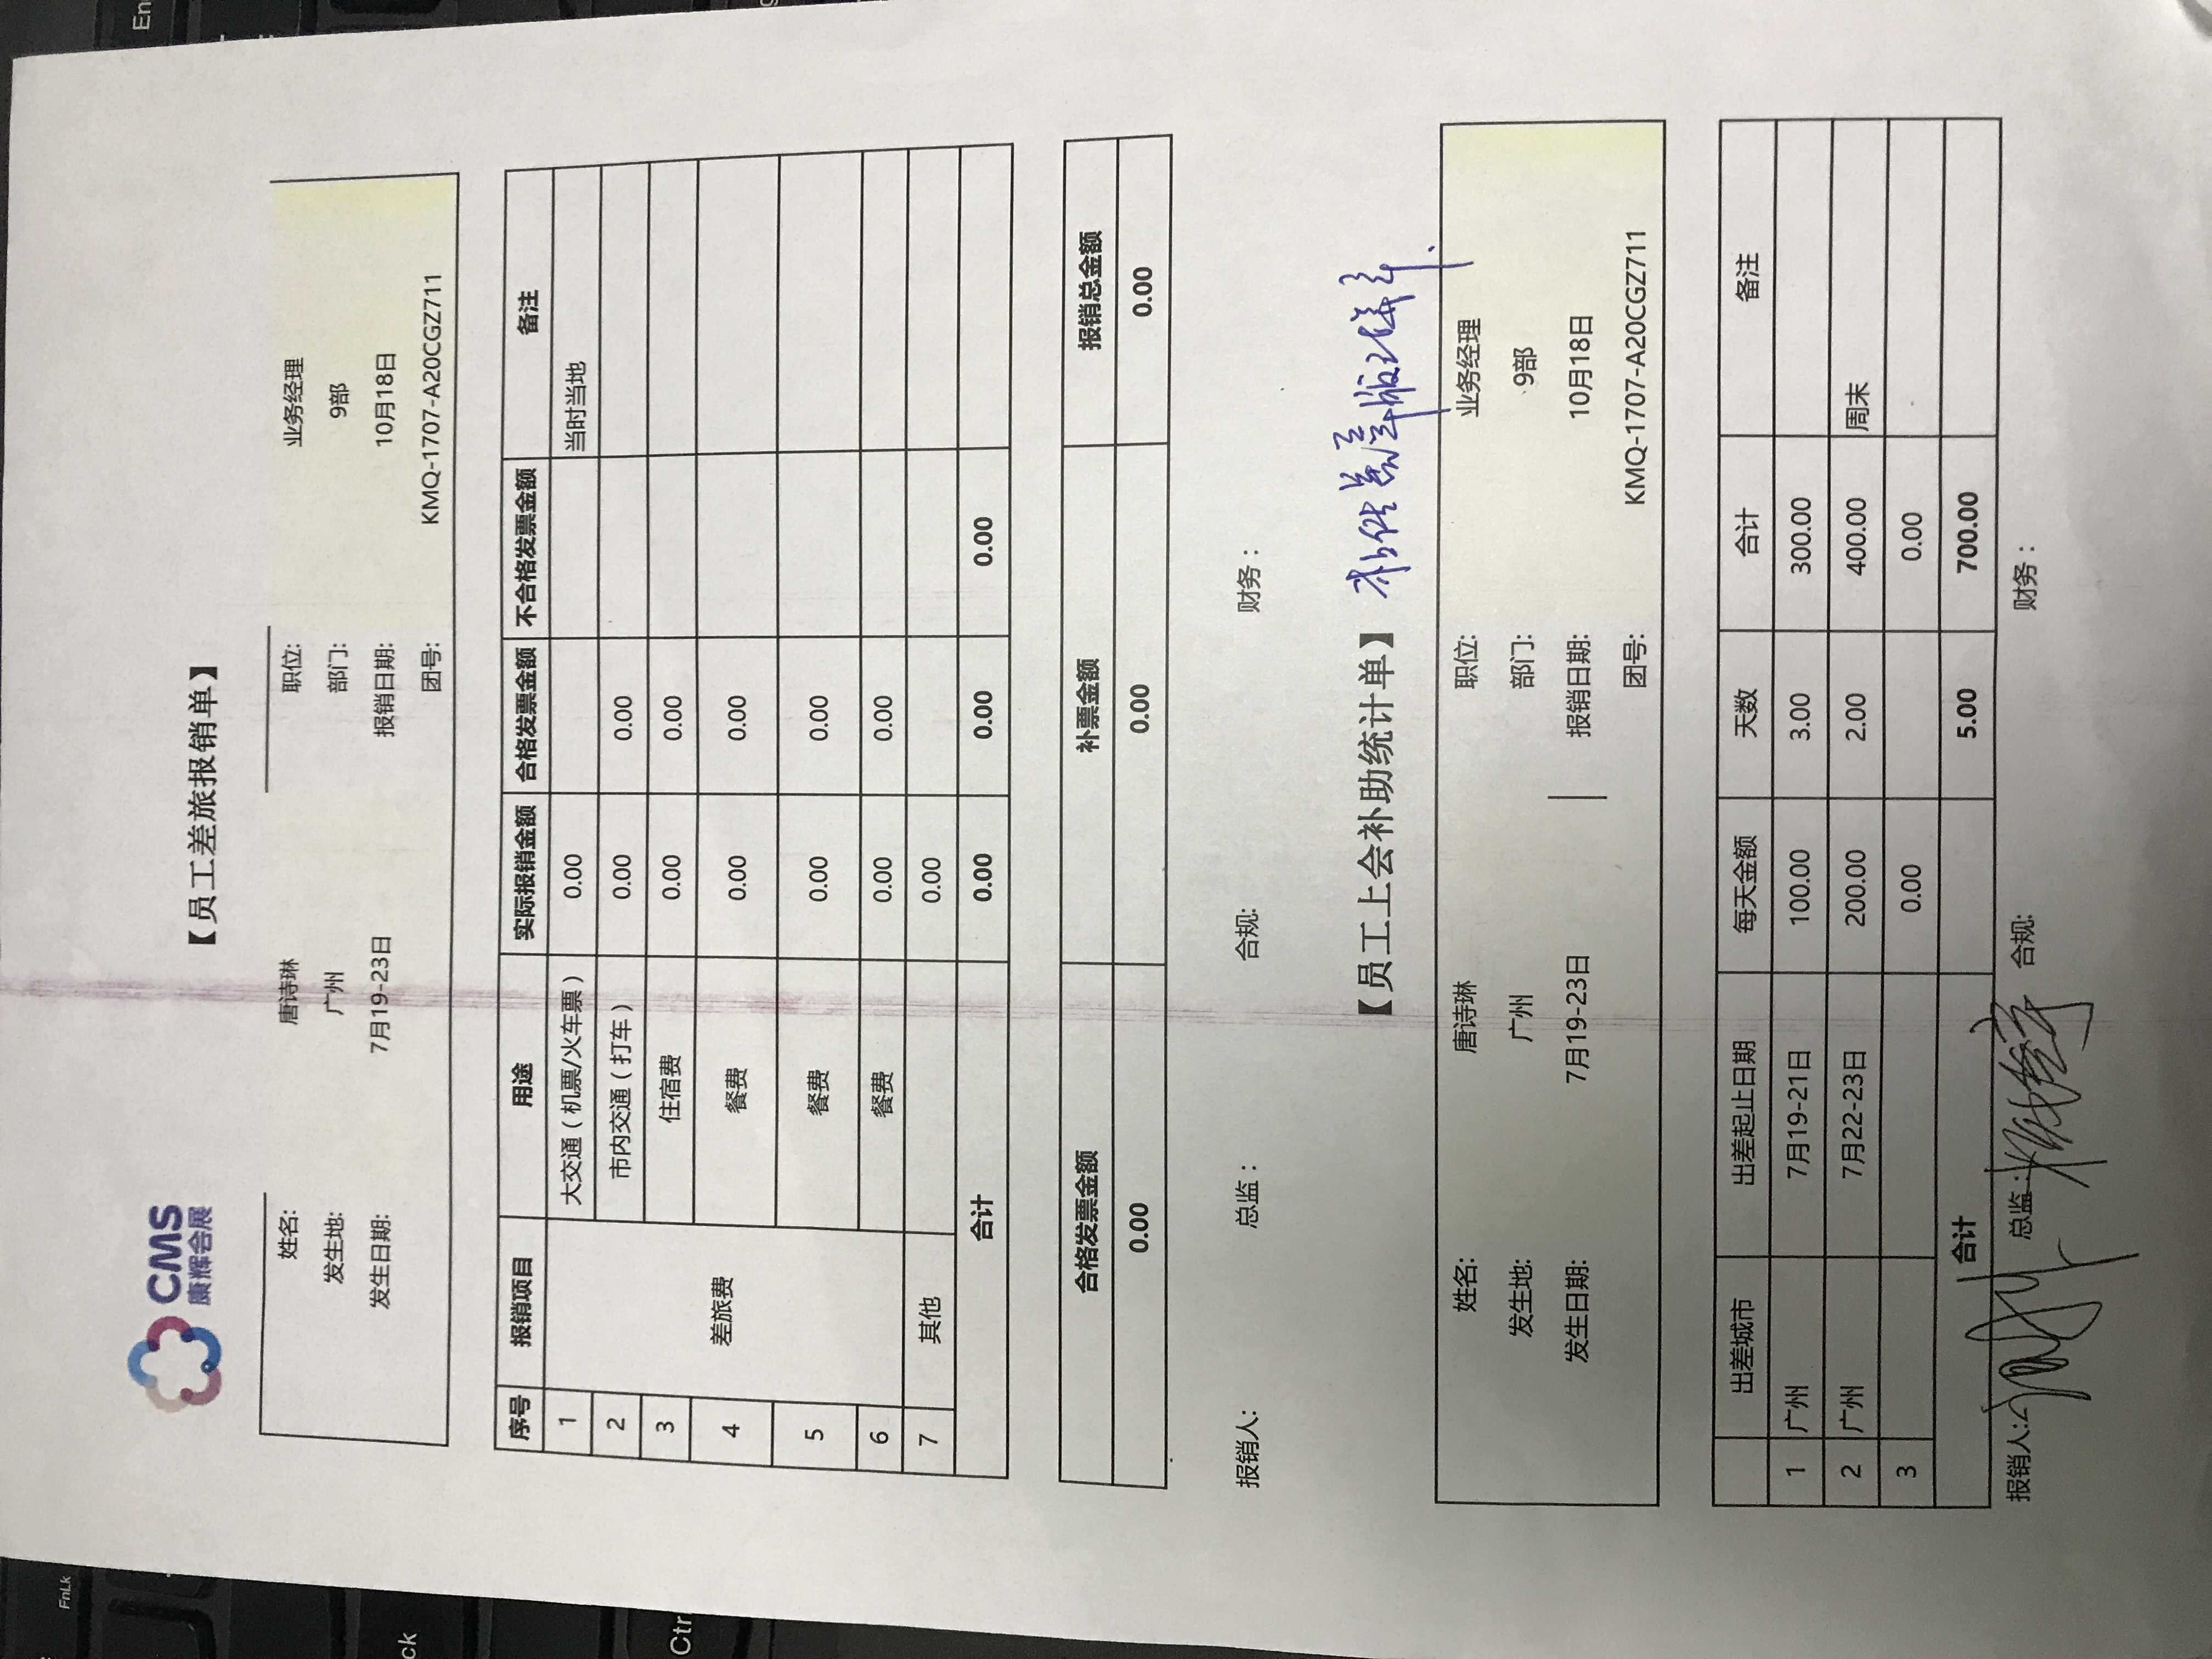 CMS
康辉会展
【员工差旅报销单】
姓名: 唐诗琳 职位: 业务经理
发生地: 广州 部门: 9部
发生日期: 7月19-23日 报销日期: 10月18日
团号: KMQ-1707-A20CGZ711
序号 报销项目 用途 实际报销金额 合格发票金额 不合格发票金额 备注
1 差旅费 大交通（机票/火车票） 0.00 当时当地
2 市内交通（打车） 0.00 0.00
3 住宿费 0.00 0.00
4 餐费 0.00 0.00
5 餐费 0.00 0.00
6 餐费 0.00 0.00
7 其他 0.00
合计 0.00 0.00 0.00
合格发票金额 补票金额 报销总金额
0.00 0.00 0.00
报销人: 总监： 合规: 财务：
【员工上会补助统计单】
姓名: 唐诗琳 职位: 业务经理
发生地: 广州 部门: 9部
发生日期: 7月19-23日 报销日期: 10月18日
团号: KMQ-1707-A20CGZ711
出差城市 出差起止日期 每天金额 天数 合计 备注
1 广州 7月19-21日 100.00 3.00 300.00
2 广州 7月22-23日 200.00 2.00 400.00 周末
3 0.00 0.00
合计 5.00 700.00
报销人: 总监： 合规: 财务：
FnLk
Ctr
ck
En